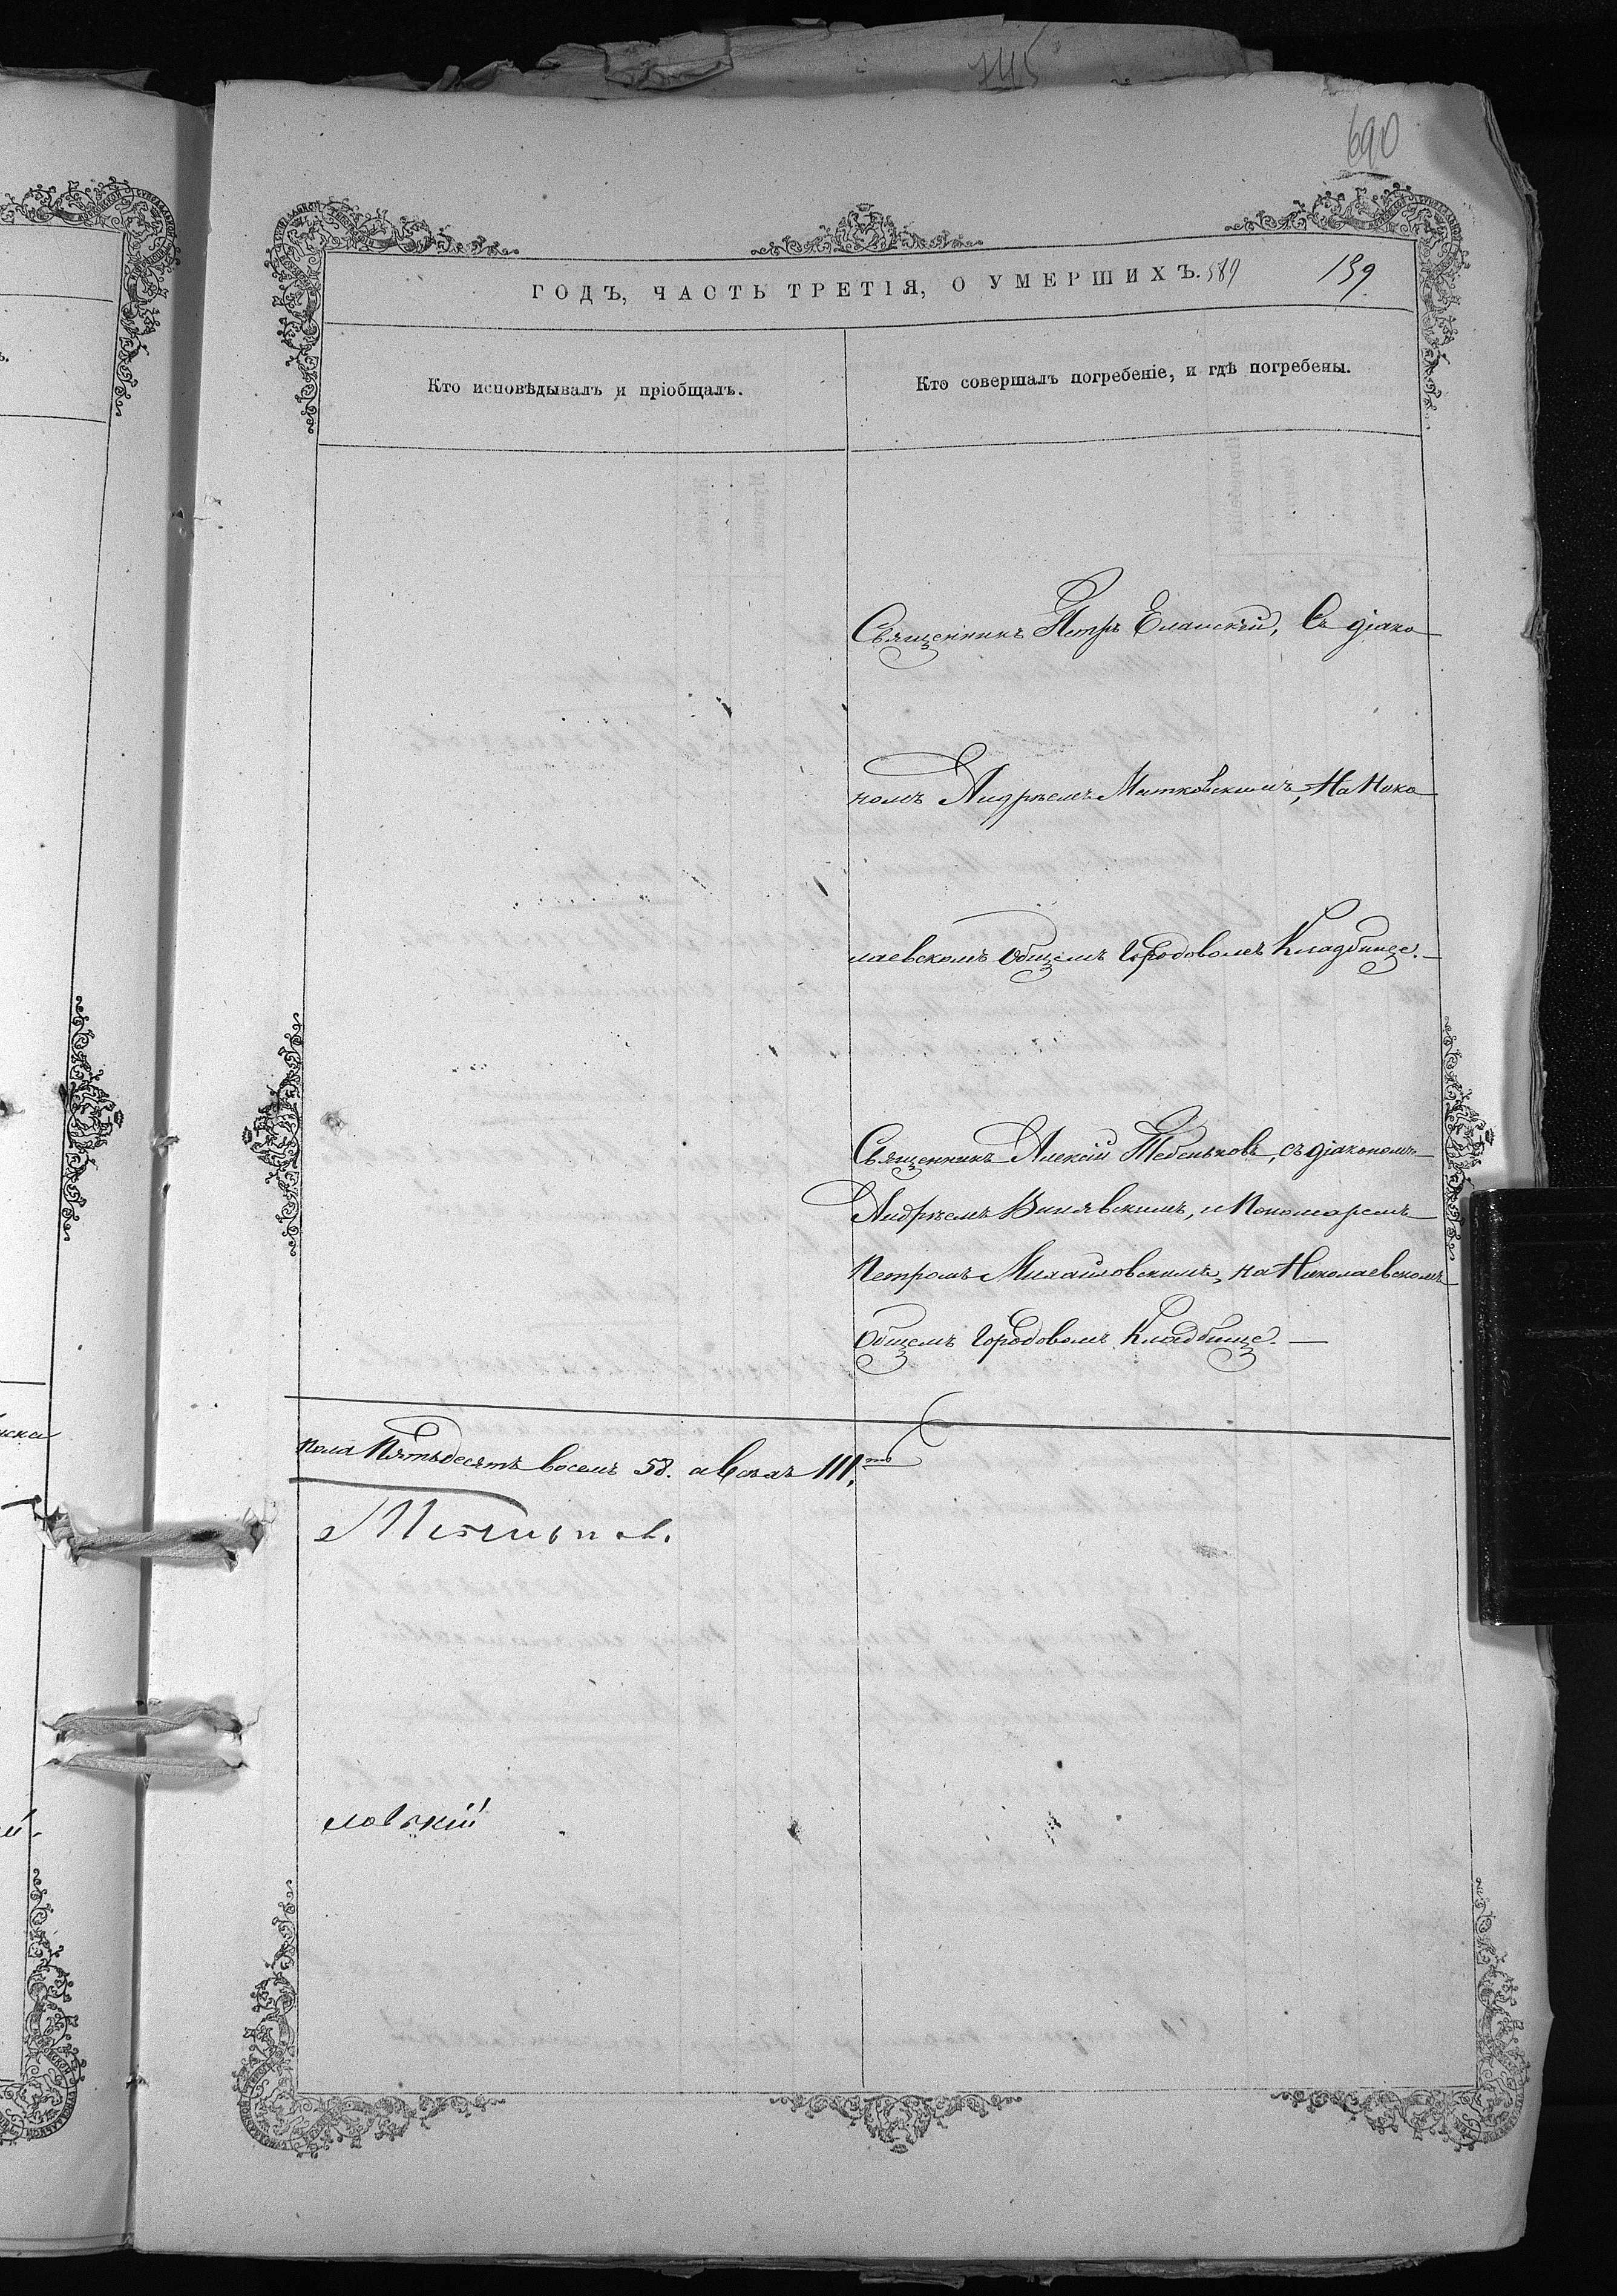 745
690
ГОДЪ, ЧАСТЬ ТРЕТІЯ, О УМЕРШИХЪ. 589 139
Кто исповѣдывалъ и пріобщалъ.
Кто совершалъ погребеніе, и гдѣ погребены.
Священникъ Петръ Еланскій, Съ діако
номъ Андреемъ Митковскимъ, На Нико
лаевскомъ Общемъ Городовомъ Кладбище. —
Священникъ Алексій Тебеньковъ, съ діакономъ
Андреемъ Винявскимъ, и Пономаремъ
Петромъ Михайловскимъ, на Николаевскомъ
Общемъ Городовомъ Кладбище. —
пола Пятьдесятъ восемь 58. а всѣхъ 111.
ловскій